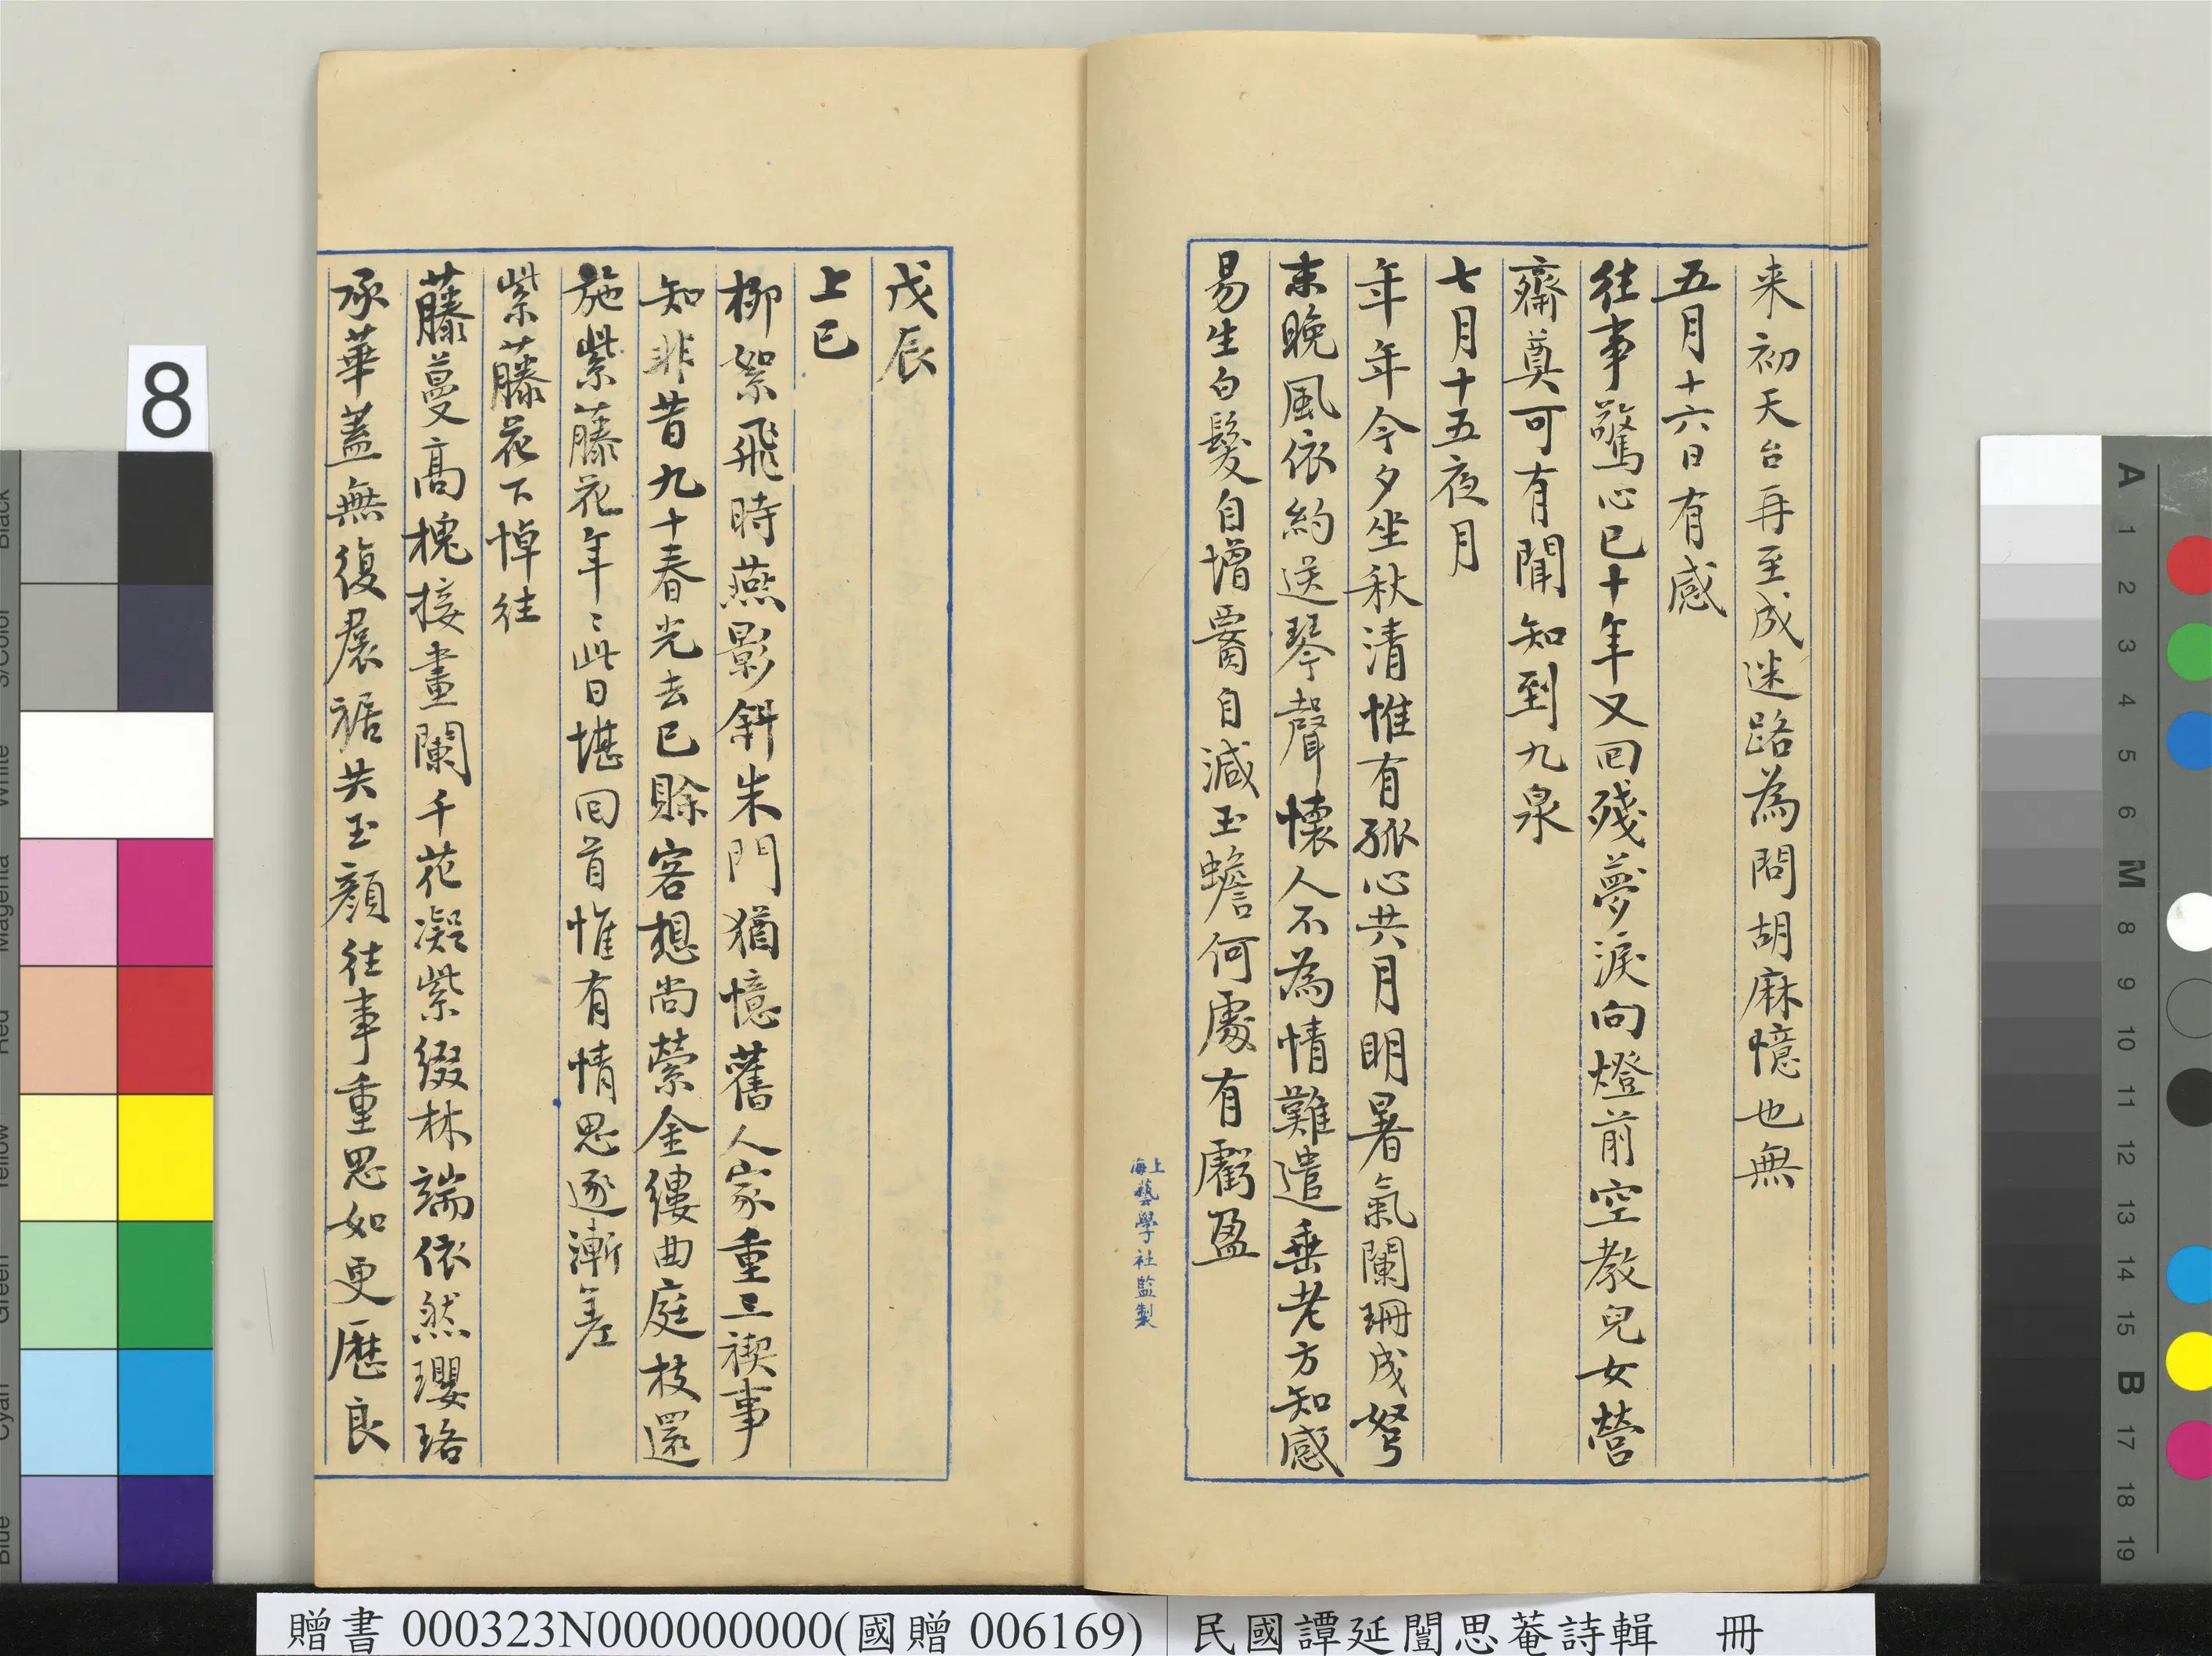 来初天台再至成迷路為問胡麻憶也無
五月十六日有感
往事驚心已十年又回殘夢淚向燈前空教兒女營
齋奠可有聞知到九泉
七月十五夜月
年年今夕坐秋清惟有孤心共月明暑氣闌珊成
末晚風依約送琴聲懷人不為情難遣垂老方知感
易生白髮自增自減玉蟾何處有虧盈
上海藝學社監製
戊辰
上巳
柳絮飛時燕影斜朱門猶憶舊人家重三禊事
知非昔九十春光去已賒客想尚縈金縷曲庭枝還
施紫藤花年〻此日堪回首惟有情思逐漸差
紫藤花下悼往
藤蔓高槐接畫闌千花凝紫綴林端依然瓔珞
承華蓋無復裙裾共玉顏往事重思如更歷良
8
贈書 000323N000000000(國贈 006169)
民國譚延闓思菴詩輯 冊
Black
3/Color
White
Magenta
Red
Yellow
Green
Cyan
Blue
A 1 2 3 4 5 6 M 8 9 10 11 12 13 14 15 B 17 18 19